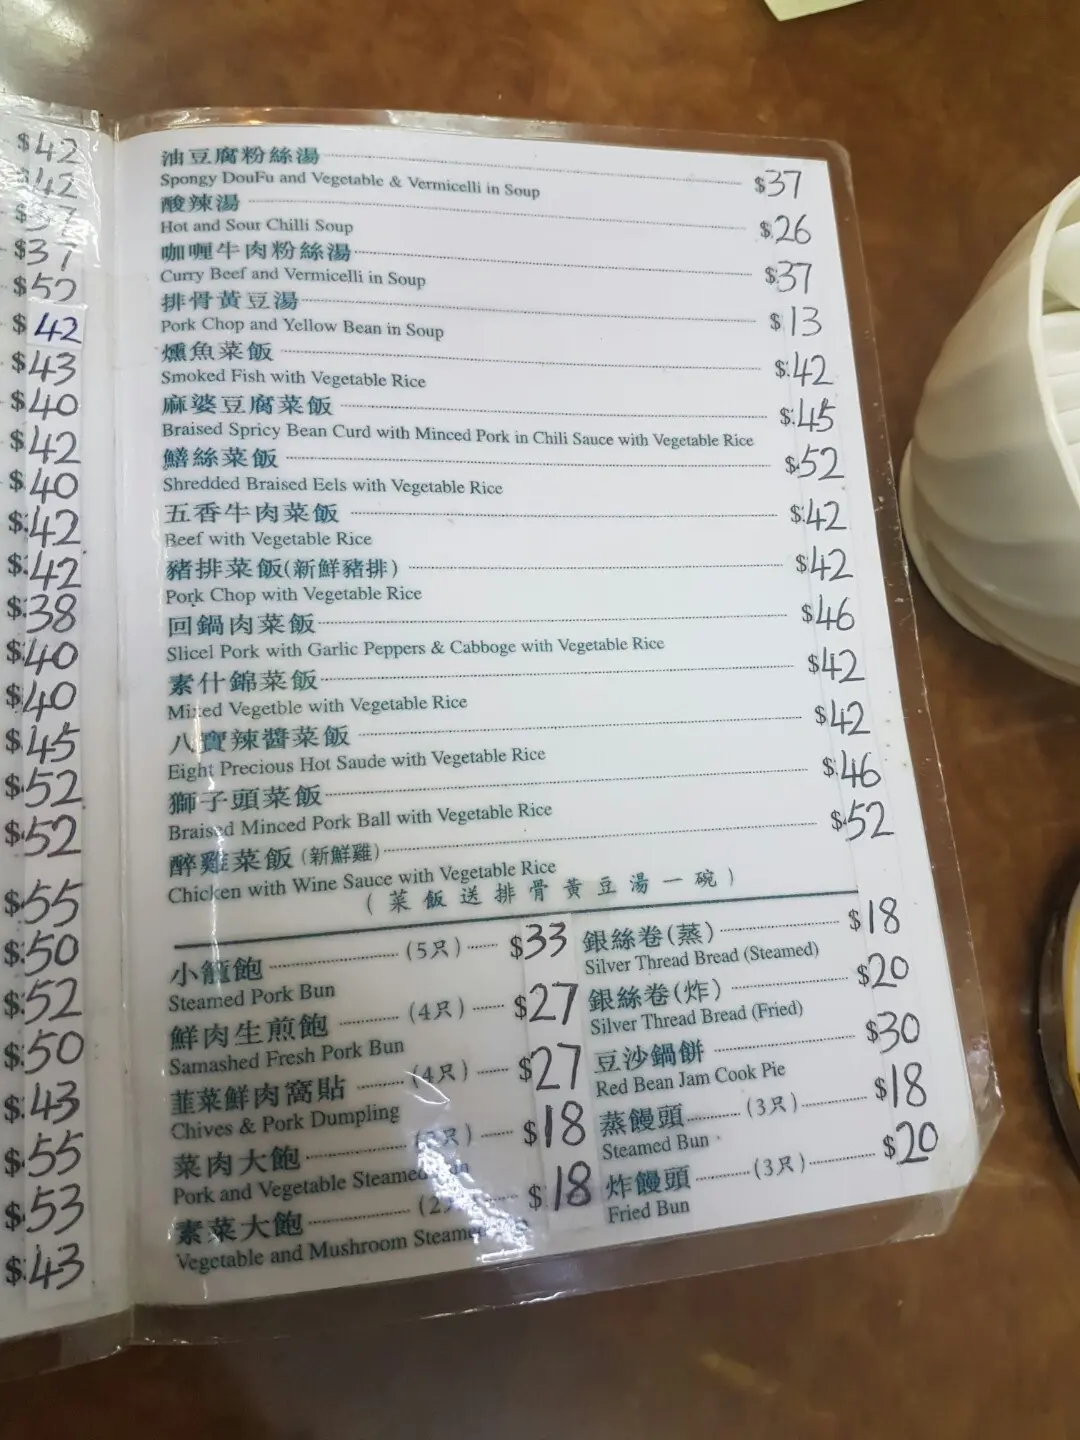 $42
$42
$37
$37
$52
$42
$43
$40
$42
$40
$42
$42
$38
$40
$40
$45
$52
$52
$55
$50
$52
$50
$43
$55
$53
$43
油豆腐粉絲湯 $37
Spongy DouFu and Vegetable & Vermicelli in Soup
酸辣湯 $26
Hot and Sour Chilli Soup
咖喱牛肉粉絲湯 $37
Curry Beef and Vermicelli in Soup
排骨黃豆湯 $13
Pork Chop and Yellow Bean in Soup
燻魚菜飯 $42
Smoked Fish with Vegetable Rice
麻婆豆腐菜飯 $45
Braised Spricy Bean Curd with Minced Pork in Chili Sauce with Vegetable Rice
鱔絲菜飯 $52
Shredded Braised Eels with Vegetable Rice
五香牛肉菜飯 $42
Beef with Vegetable Rice
豬排菜飯(新鮮豬排) $42
Pork Chop with Vegetable Rice
回鍋肉菜飯 $46
Slicel Pork with Garlic Peppers & Cabboge with Vegetable Rice
素什錦菜飯 $42
Mixed Vegetble with Vegetable Rice
八寶辣醬菜飯 $42
Eight Precious Hot Saude with Vegetable Rice
獅子頭菜飯 $46
Braised Minced Pork Ball with Vegetable Rice
醉雞菜飯(新鮮雞) $52
Chicken with Wine Sauce with Vegetable Rice
(菜飯送排骨黃豆湯一碗)
小籠飽 (5只) $33
Steamed Pork Bun
鮮肉生煎飽 (4只) $27
Samashed Fresh Pork Bun
韮菜鮮肉窩貼 (4只) $27
Chives & Pork Dumpling
菜肉大飽 只) $18
Pork and Vegetable Steamed
素菜大飽 (2 $18
Vegetable and Mushroom Steamed
銀絲卷(蒸) $18
Silver Thread Bread (Steamed)
銀絲卷(炸) $20
Silver Thread Bread (Fried)
豆沙鍋餅 $30
Red Bean Jam Cook Pie
蒸饅頭 (3只) $18
Steamed Bun
炸饅頭 (3只) $20
Fried Bun